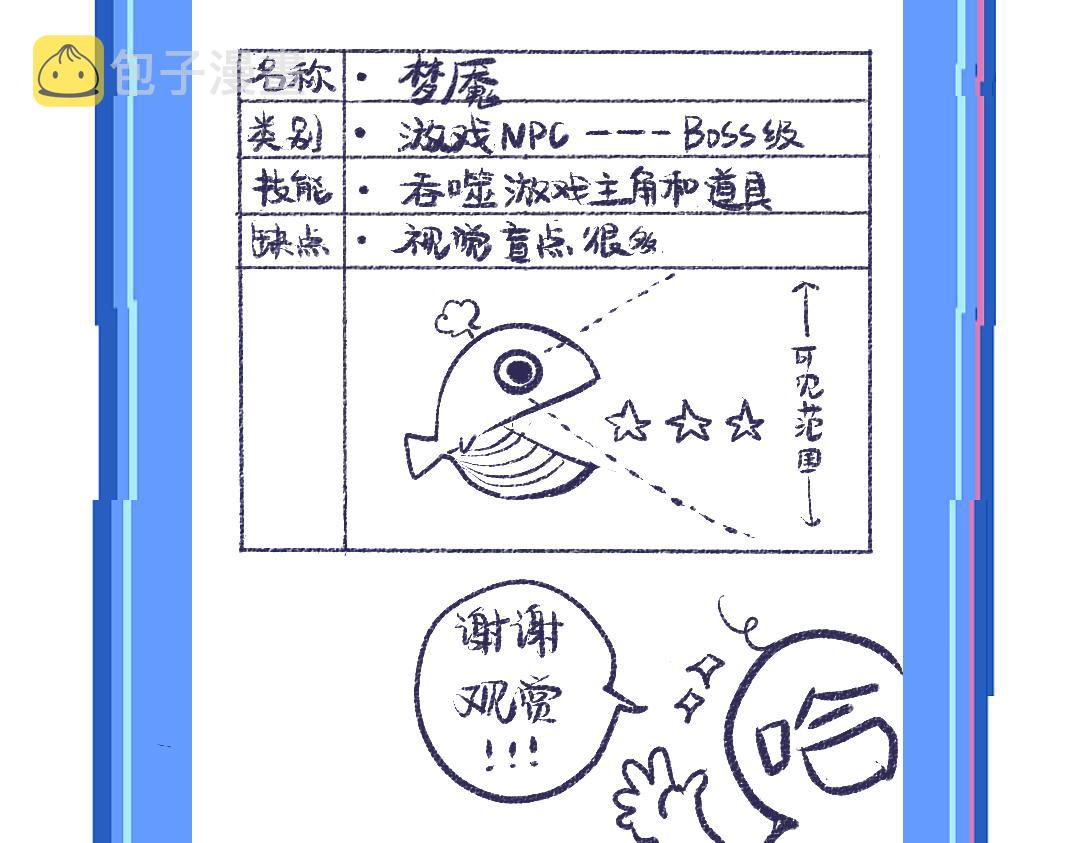 包子漫畫
名称 • 梦魇
类别 • 游戏NPC ---Boss级
技能 • 吞噬游戏主角和道具
缺点 • 视觉盲点很多
可见范围
谢谢
观赏
!!!
哈